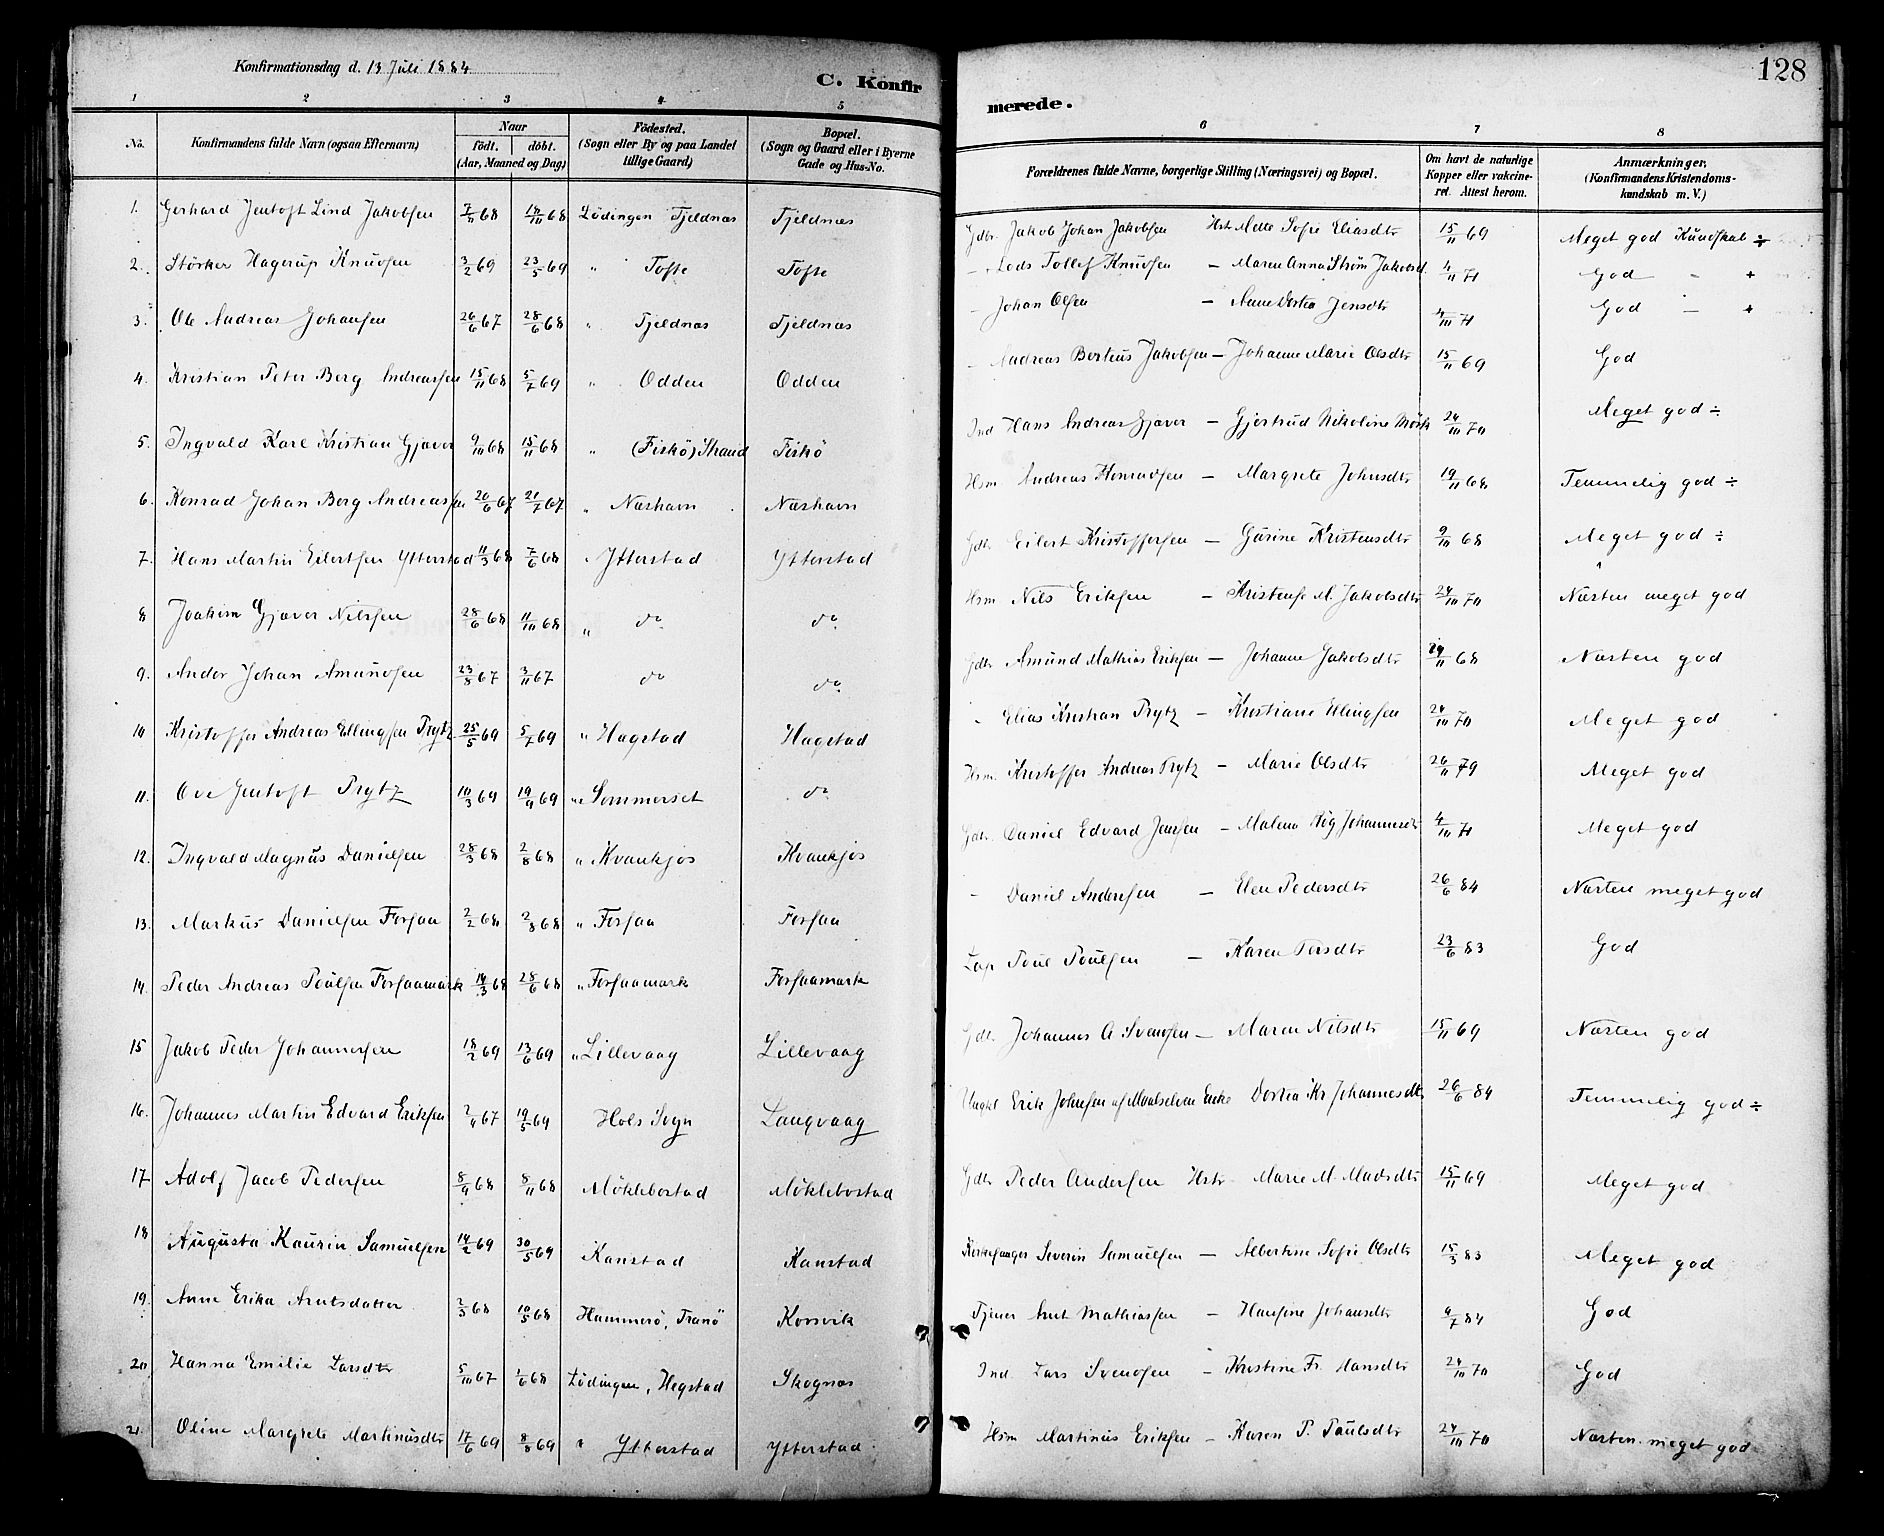 Konfirmationsdag d. 13 Juli 1884.
C. Konfir
merede.
128
1 2 3 4 5 6 7 8
No. Konfirmandens fulde Navn (ogsaa Efternavn) Naar födt. döbt. (Aar, Maaned og Dag) Födested. (Sogn eller By og paa Landet tillige Gaard) Bopæl. (Sogn og Gaard eller i Byerne Gade og Hus-No. Forældrenes fulde Navne, borgerlige Stilling (Næringsvei) og Bopæl. Om havt de naturlige Kopper eller vakcineret. Attest herom. Anmærkninger, (Konfirmandens Kristendomskundskab m. V.)
1. Gerhard Jentoft Lind Jakobsen 7/11 68 18/10 68 Lödingen Tjeldnæs Tjeldnæs Gdbr. Jakob Johan Jakobsen Hstr Mette Sofie Eliasdtr 15/11 69 Meget god Kundskab ÷
2. Störker Hagerup Knudsen 3/2 69 23/5 69 " Tofte Tofte - Lods Tollef Knudsen — Maren Anna Strøm Jakobsd. 4/11 71 God - +
3. Ole Andreas Johansen 26/6 67 28/6 68 " Tjeldnæs Tjeldnæs - Johan Olsen — Anne Dortea Jensdtr 4/10 71 God — +
4. Kristian Peter Berg Andreassen 15/11 68 5/7 69 " Odden Odden - Andreas Berteus Jakobsen — Johanne Marie Olsdtr 15/11 69 God
5. Ingvald Karl Kristian Gjæver 9/10 68 15/11 68 " (Fiskö) Strand Fiskö Ind Hans Andreas Gjæver — Gjertrud Nikoline Mörk 24/10 70 Meget god ÷
6. Konrad Johan Berg Andreassen 20/6 67 21/7 67 " Næshavn Næshavn Hsm Andreas Konradsen — Margrete Johnsdtr 19/11 68 Temmelig god ÷
7. Hans Martin Eilertsen Ytterstad 11/3 68 7/6 68 " Ytterstad Ytterstad Gdbr Eilert Kristoffersen — Gurine Kristensdtr 9/10 68 Meget god ÷
8 Joakim Gjæver Nilssen 28/6 68 11/10 68 " do do. Hsm Nils Eriksen — Kristense M. Jakobsdtr 24/10 70 Næsten meget god
9. Andor Johan Amundsen 23/8 67 3/11 67 do do. Gdbr Amund Mathias Eriksen — Johanne Jakobsdtr 29/11 68 Næsten god
10 Kristoffer Andreas Ellingsen Prytz 25/5 69 5/7 69 " Hagstad Hagstad " Elias Kristian Prytz — Kristiane Ellingsen 24/10 70 Meget god
11. Ove Jentoft Prytz 10/3 69 19/9 69 " Sommerset do Hsm. Kristoffer Andreas Prytz — Marie Olsdtr 20/11 79 Meget god
12. Ingvald Magnus Danielsen 28/3 68 2/8 68 " Kvankjos Kvankjos Gdbr. Daniel Edvard Jensen — Malena Høg Johannesdtr 4/10 71 Meget god
13. Markus Danielsen Forsaa 2/2 68 2/8 68 " Forsaa Forsaa - Daniel Andersen — Elen Pedersdtr 26/6 84 Næsten meget god
14. Peder Andreas Poulsen Forsaamark 14/3 68 28/6 68 " Forsaamark Forsaamark Lap Poul Poulsen — Karen Persdtr 23/6 83 God
15 Jakob Peder Johannessen 18/2 69 13/6 69 " Lillevaag Lillevaag Gdbr. Johannes A Svendsen — Maren Nilsdtr 15/11 69 Næsten god
16. Johannes Martin Edvard Eriksen 2/4 67 19/5 69 Hols Sogn Langvaag Ungkl Erik Johnsen af Maalselven Enke Dortea Kr Johannesdtr 26/6 84 Temmelig god ÷
17 Adolf Jacob Pedersen 8/9 68 8/11 68 Möklebostad Möklebostad Gdbr Peder Andersen Hstr Marie M. Madsdtr 15/11 69 Meget god
18 Augusta Kaurin Samuelsen 14/2 69 30/5 69 Kanstad Kanstad Kirkesanger Severin Samuelsen — Albertine Sofie Olsdtr 15/3 83 Meget god
19. Anne Erika Arntsdatter 2/3 68 10/5 68 Hammerö, Tranö Korsvik Tjener Arnt Mathiassen — Hansine Johansdtr 9/7 84 God
20 Hanna Emilie Larsdtr 5/10 67 1/6 68 Lödingen, Hegstad Skognæs Ind. Lars Svendsen — Kristine Fr. Hansdtr 24/10 70 God
21. Oline Margrete Martinusdtr 17/6 69 8/8 69 " Ytterstad Ytterstad Hsm Martinus Eriksen — Karen P. Paulsdtr 24/10 70 Næsten meget god